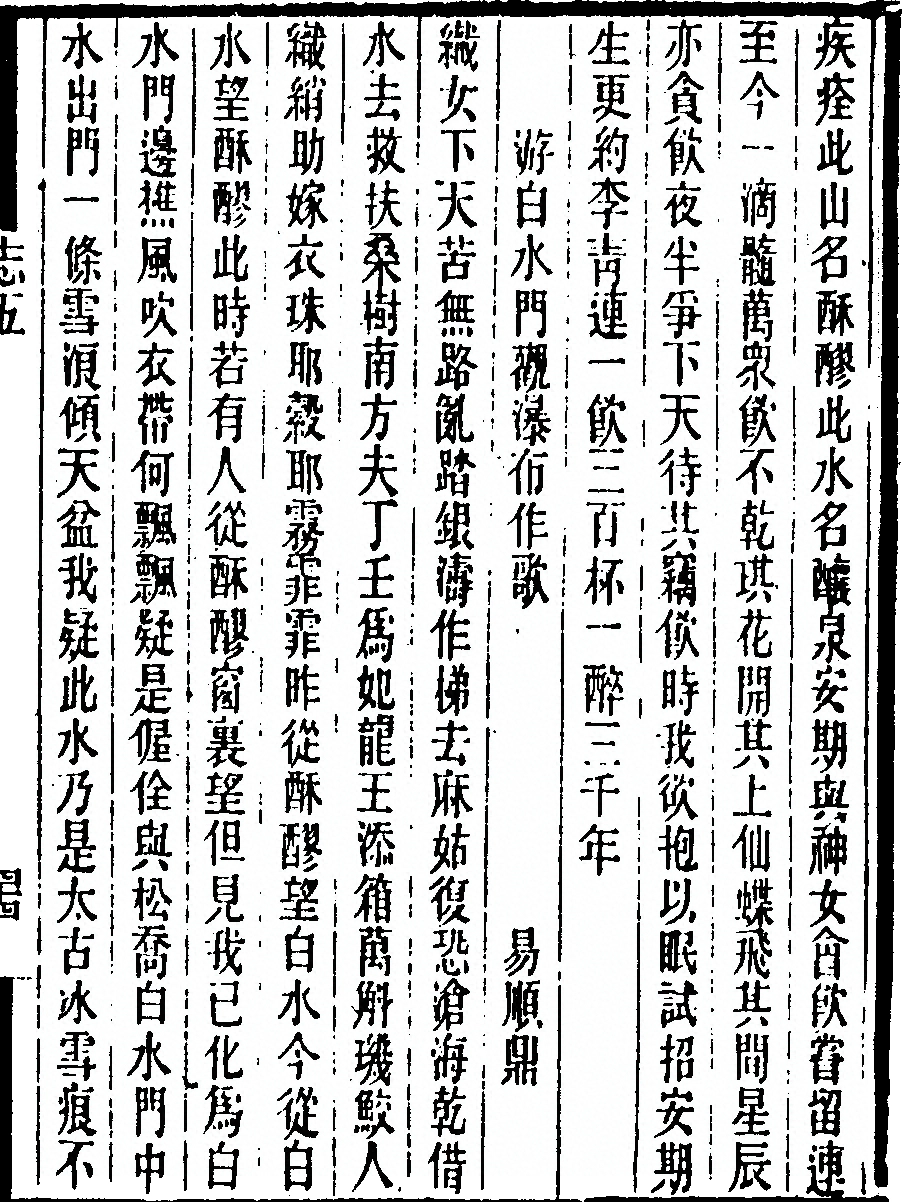 疾痊此山名酥醪此水名釀泉安期與神女會飲嘗留連
至今一滴髓萬衆飲不乾琪花開其上仙蝶飛其間星辰
亦貪飲夜半爭下天待其竊飲時我欲抱以眠試招安期
生更約李靑連一飲三百杯一醉三千年
游白水門觀瀑布作歌 易順鼎
織女下天苦無路亂踏銀濤作梯去麻姑復恐滄海乾借
水去救扶桑樹南方夫丁壬爲妃龍王添箱萬斛璣鮫人
織綃助嫁衣珠耶縠耶霧霏霏昨從酥醪望白水今從白
水望酥醪此時若有人從酥醪窗裏望但見我已化爲白
水門邊樵風吹衣帶何飄飄疑是偓佺與松喬白水門中
水出門一條雪澒傾天盆我疑此水乃是太古冰雪痕不
志五